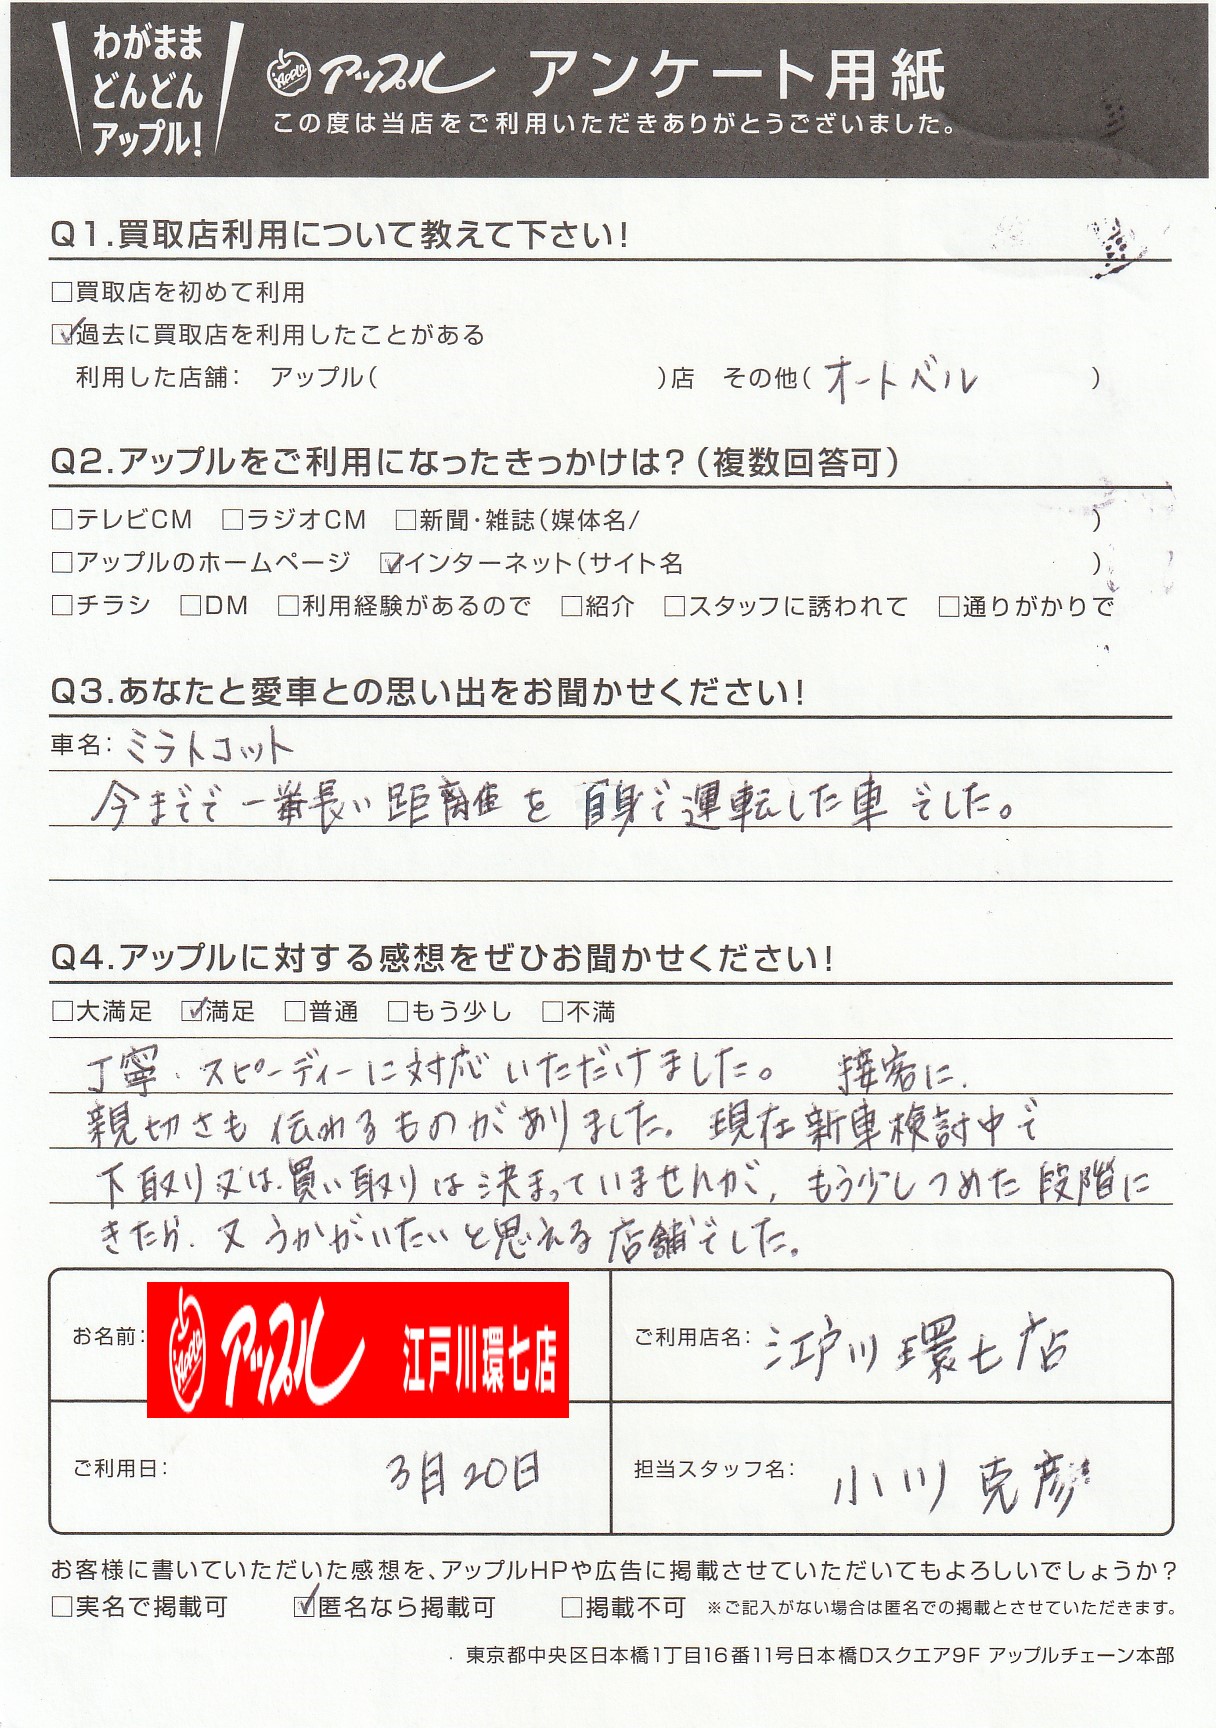 わがまま
どんどん
アップル!
Apple アップル アンケート用紙
この度は当店をご利用いただきありがとうございました。
Q1.買取店利用について教えて下さい!
□買取店を初めて利用
☑過去に買取店を利用したことがある
利用した店舗: アップル( )店 その他( オートベル )
Q2.アップルをご利用になったきっかけは?(複数回答可)
□テレビCM □ラジオCM □新聞・雑誌(媒体名/ )
□アップルのホームページ ☑インターネット(サイト名 )
□チラシ □DM □利用経験があるので □紹介 □スタッフに誘われて □通りがかりで
Q3.あなたと愛車との思い出をお聞かせください!
車名: ミラトコット
今までで一番長い距離を自身で運転した車でした。
Q4.アップルに対する感想をぜひお聞かせください!
□大満足 ☑満足 □普通 □もう少し □不満
丁寧、スピーディーに対応いただけました。 接客に、
親切さも伝わるものがありました。現在新車検討中で
下取り又は買い取りは決まっていませんが、もう少しつめた段階に
きたら、又うかがいたいと思える店舗でした。
お名前: Apple アップル 江戸川環七店
ご利用店名: 江戸川環七店
ご利用日: 3月20日
担当スタッフ名: 小川克彦
お客様に書いていただいた感想を、アップルHPや広告に掲載させていただいてもよろしいでしょうか?
□実名で掲載可 ☑匿名なら掲載可 □掲載不可 ※ご記入がない場合は匿名での掲載とさせていただきます。
東京都中央区日本橋1丁目16番11号日本橋Dスクエア9F アップルチェーン本部